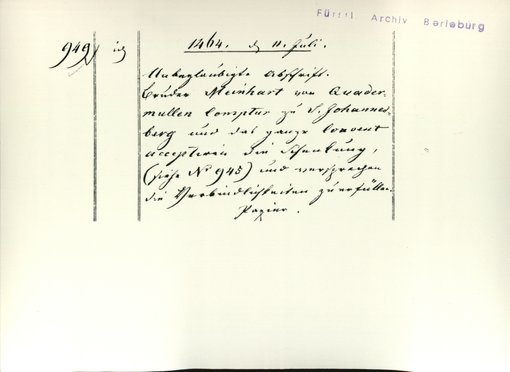 Fürstl. Archiv Berleburg
949
1464. d 11. Juli.
Unbeglaubigte Abschrift.
Bruder Meinhart von Quader-
mullen Comptur zu S. Johannes-
berg und das ganze Convent
acceptiren die Schenkung,
(siehe No 945) und versprechen
die Verbindlichkeiten zu erfüllen.
Papier.